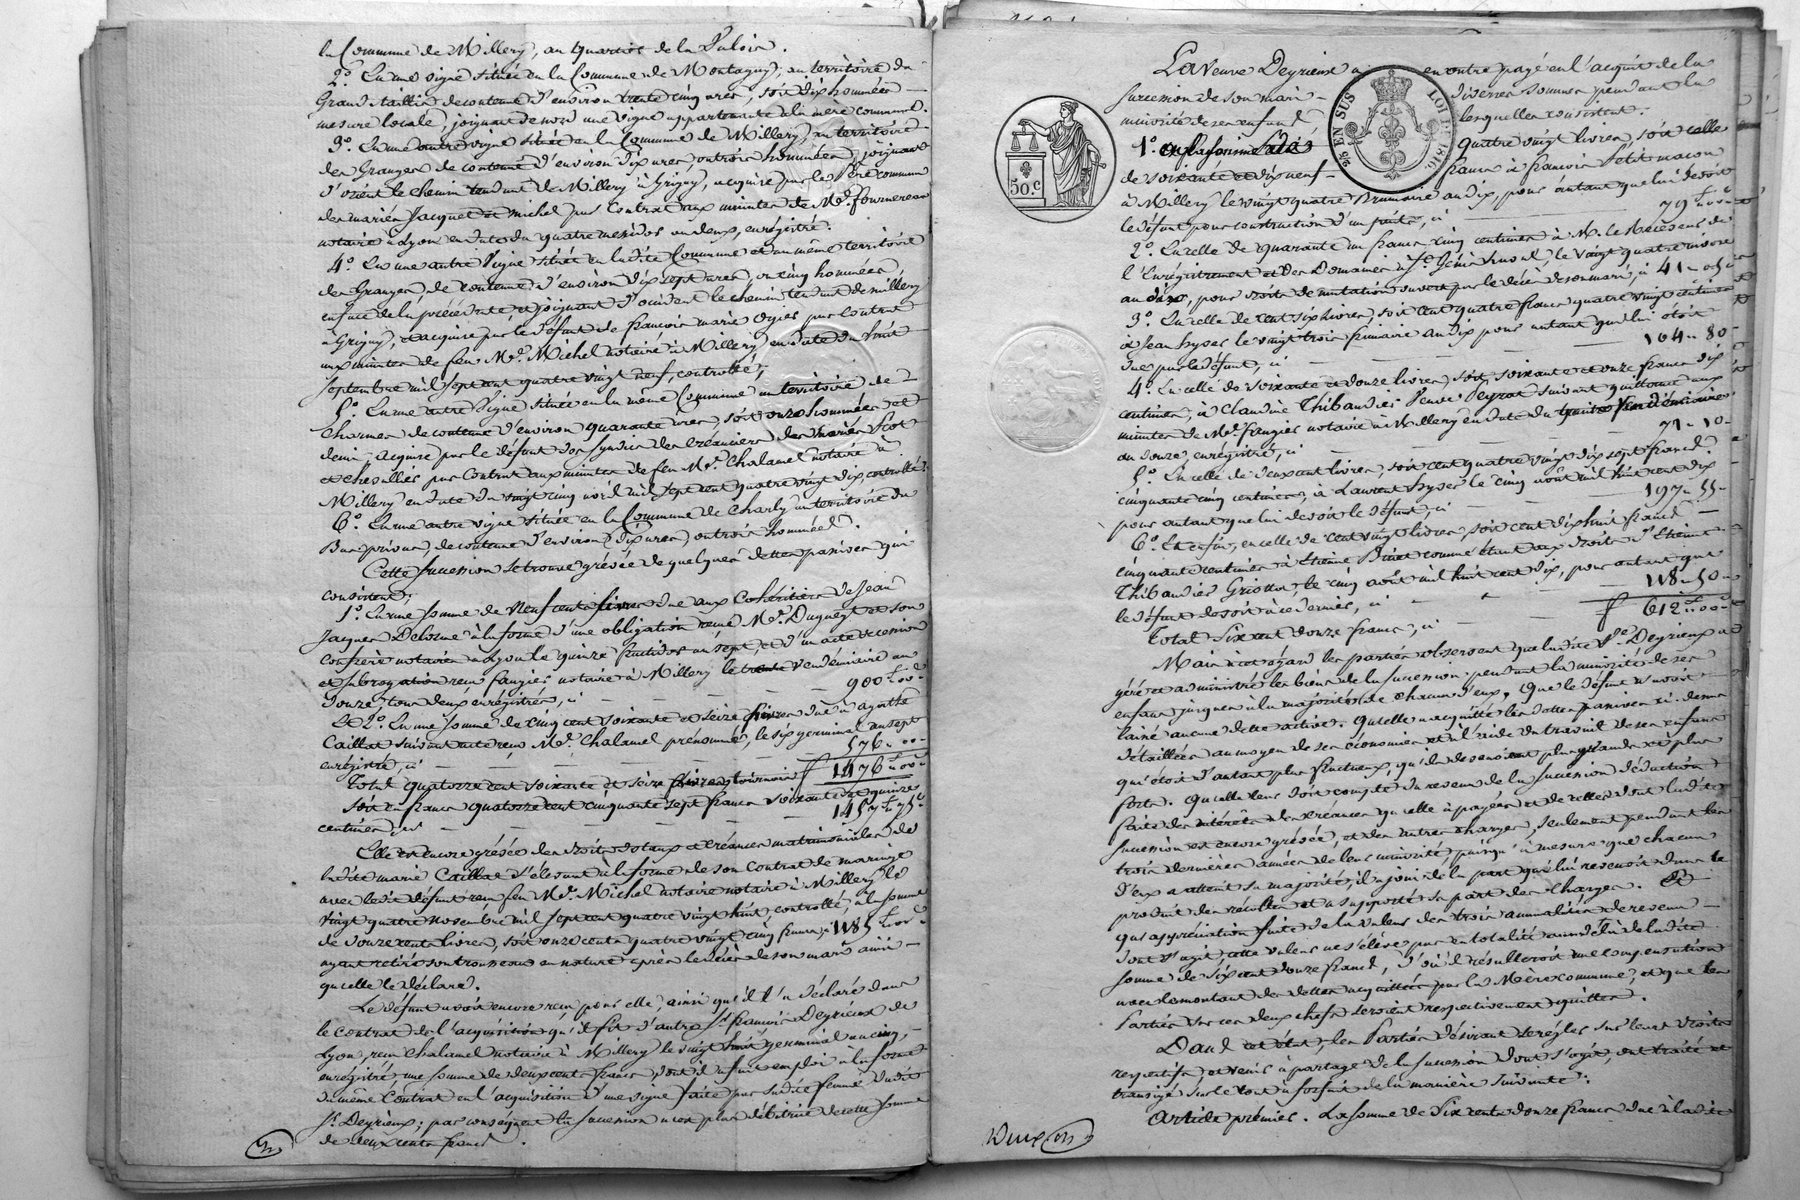 la Commune de Millery, au quartier de la
2.° En une vigne située en la Commune de Montagny, au territoire du
Grand Taillis de contenue d'environ trente cinq ares, soit dix hommées
mesure locale, joignant de nord une vigne appartenante à la mère commune.
3.° En une autre vigne située en la Commune de Millery, au territoire
des Granges de contenue d'environ dix ares, ou trois hommées, joignant
d'orient le chemin tendant de Millery à Grigny, acquise par le Père commun
des mariés Jacquet et Michel par contrat aux minutes de M.e fournereau
notaire à Lyon en date du quatre messidor an deux, enrégistré.
4.° En une autre Vigne située en ladite Commune et au même territoire
des Granges, de contenue d'environ dix sept ares, ou cinq hommées,
en face de la précédente, et joignant d'occident le chemin tendant de millery
à Grigny, acquise par le défunt de françois marie Ogier par Contrat
aux minutes de feu M.e Michel notaire à Millery en date du huit
septembre mil sept cent quatre vingt neuf, controllé;
5.° En une autre Vigne située en la même Commune au territoire de
Charmes de contenue d'environ quarante ares, soit onze hommées et
demi, acquise par le défunt des syndics des créanciers des mariés
et chevallier par contrat aux minutes de feu M.e Chalamel notaire à
Millery en date du vingt cinq avril mil sept cent quatre vingt dix, controllé;
6.° En une autre vigne située en la Commune de Charly au territoire du
de contenue d'environ dix ares, ou trois hommées.
Cette succession se trouve grévée de quelques dettes passives qui
consistent;
1.° En une somme de Neuf cents livres due aux Cohéritiers de Jean
Jacques Delorme à la forme d'une obligation reçue M.e Duguet et son
confrère notaires à Lyon le quinze fructidor an sept, et d'un acte de cession
et subrogation reçu faugier notaire à Millery le trente Vendémiaire an
douze, tous deux enrégistrés, ci 900.# 00.c
Et 2.° En une somme de cinq cent soixante et seize livres due à agathe
Caillat suivant acte reçu M.e Chalamel prénommé, le six germinal an sept
enrégistré, ci 576. 00
Total quatorze cent soixante et seize livres tournois 1476.# 00.c
soit en francs quatorze cent cinquante sept francs soixante et quinze
centimes, ci 1457.f 75.c
Elle est encore grévée des droits dotaux et créances matrimoniales de
ladite marie Caillat s'élevant à la forme de son Contrat de mariage
avec ledit défunt reçu feu M.e Michel notaire notaire à Millery le
vingt quatre Novembre mil sept cent quatre vingt huit, controllé, à la somme
de douze cents livres, soit onze cents quatre vingt cinq francs, 1185.f 00.c
ayant retiré son trousseau en nature après le décès de son mari ainsi
qu'elle le déclare.
Le défunt avoit encore reçu pour elle, ainsi qu'il l'a déclaré dans
le contrat de l'acquisition qu'il fit d'autre S.r françois Deyrieux de
Lyon, reçu Chalamel notaire à Millery le vingt huit germinal an cinq,
enrégistré, une somme de deux cents francs, dont il a fait emploi à la forme
du même Contrat en l'acquisition d'une vigne faite par sa dite femme dudit
S.r Deyrieux; par conséquent la succession n'est plus débitrice de cette somme
de deux cents francs.
La Veuve Deyrieux a en outre payé en l'acquit de la
succession de son mari diverses sommes pendant la
minorité de ses enfans lesquelles consistent:
1.° quatre vingt livres, soit celle
de soixante et dix neuf francs à françois Petit maçon
à Millery le vingt quatre Brumaire an dix, pour autant que lui devoit
le défunt pour construction d'un puits, ci 79.# 00.c
2.° En celle de quarante un francs cinq centimes à M. le Receveur de
l'Enrégistrement et des Domaines à S.t Génis Laval, le vingt quatre nivose
an dix, pour droits de mutation ouverts par le décès de son mari, ci 41. 05
3.° En celle de cent six livres, soit cent quatre francs quatre vingt centimes
à Jean hyser le vingt trois frimaire an dix pour autant que lui étoit
due par le défunt, ci 104. 80
4.° En celle de soixante et douze livres, soit soixante et onze francs dix
centimes, à Claudine Thibaudier Veuve Peyrat suivant quittance aux
minutes de M.e faugier notaire à Millery en date du trente Vendémiaire
an douze, enrégistré, ci 71. 10
5.° En celle de deux cent livres, soit cent quatre vingt dix sept francs
cinquante cinq centimes, à Laurent hyser le cinq août mil huit cent dix
pour autant que lui devoit le défunt, ci 197. 55
6.° Et enfin, en celle de cent vingt livres soit cent dix huit francs
cinquante centimes à Etienne comme étant aux droits d'Etienne
Thibaudier Griottier, le cinq août mil huit cent dix, pour autant que
le défunt devoit à ce dernier, ci 118. 50
Total Six cent douze francs, ci 612.f 00.c
Mais à cet égard les parties observent que ladite V.e Deyrieux a
géré et administré les biens de la succession pendant la minorité de ses
enfans jusques à la majorité de chacun d'eux, que le défunt n'avoit
laissé aucune dette active. Qu'elle a acquitté les dettes passives ci-dessus
détaillées au moyen de ses économies et à l'aide du travail de ses enfans
qui étoit d'autant plus fructueux, qu'ils devenoient plus grands et plus
forts. Qu'elle leur doit compte du revenu de la succession déduction
faite des intérêts des créances qu'elle a payées et de celles dont ladite
succession est encore grévée, et des autres charges, seulement pendant les
trois dernières années de leur minorité, puisqu'à mesure que chacun
d'eux a atteint sa majorité, il a joui de la part qui lui revenoit dans le
produit des récoltes et a supporté sa part des charges.
qu'appréciation faite de la valeur des trois annualités de revenu
dont s'agit, cette valeur ne s'élève pas en totalité au delà de ladite
somme de six cent douze francs, d'où il résulteroit une compensation
avec le montant des dettes acquittées par la Mère commune, et que les
Parties sur ces deux chefs seroient respectivement quittes.
Dans cet état, les Parties désirant se régler sur leurs droits
respectifs et venir à partage de la succession dont s'agit, ont traité et
transigé sur le tout à forfait de la manière suivante:
Article premier. La somme de Six cents douze francs due à ladite
50.c
25 EN SUS
LOI DE 1816